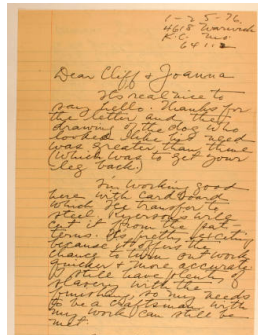 1-25-76
4615 Warwick
K.C. Mo.
64112
Dear Cliff & Joanna
It's real nice to
say hello. Thanks for
the letter and the
drawing of the dog who
looked like his need
was greater than thine
(which was to get your
leg back.)
I'm working good
here with cardboard
which I transfer to
steel, Ryersons will
cut it from the pat-
terns. It's pretty exciting
because it offers the
chance to turn out work
quicker & more accurate
I still have plenty of
slavery with the
finishing, so my needs
to be a craftsman with
my work can still be
met.